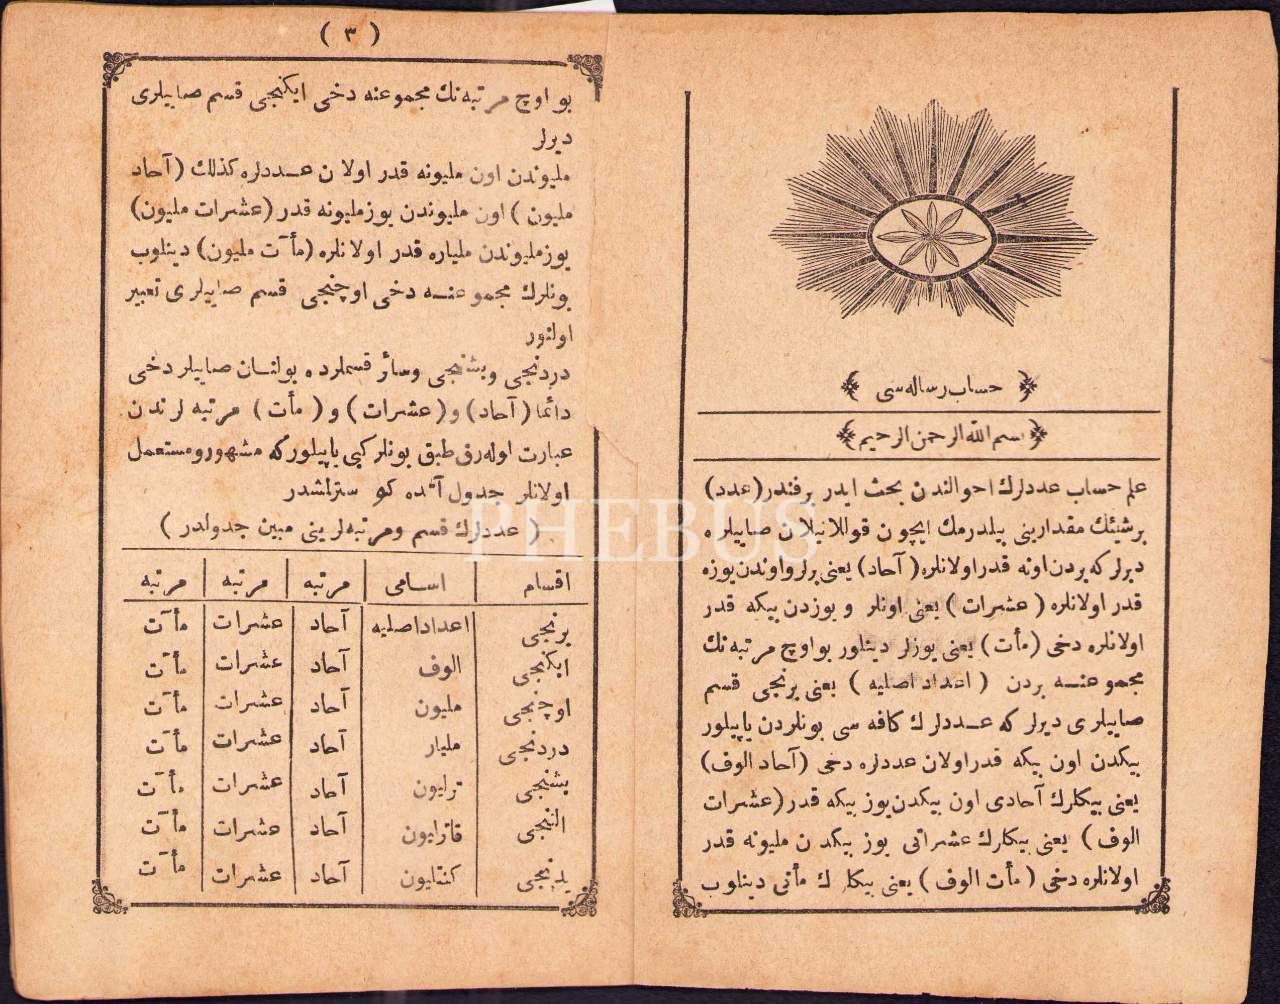 حساب رساله سی
بسم الله الرحمن الرحیم
علم حساب عددلرك احوالندن بحث ایدر برفندر (عدد)
برشیئك مقدارینی بیلدرمك ایچون قوللانیلان صاییلره
دیرلر كه بردن اونه قدر اولانلره (آحاد) یعنی برلر واوندن یوزه
قدر اولانلره (عشرات) یعنی اونلر و یوزدن بیكه قدر
اولانلره دخی (مأت) یعنی یوزلر دینلور بو اوچ مرتبه نك
مجموعنه بردن (اعداد اصلیه) یعنی برنجی قسم
صاییلری دیرلر كه عددلرك كافه سی بونلردن یاپیلور
بیكدن اون بیكه قدر اولان عددلره دخی (آحاد الوف)
یعنی بیكلرك آحادی اون بیكدن یوز بیكه قدر (عشرات
الوف) یعنی بیكلرك عشراتی یوز بیكدن ملیونه قدر
اولانلره دخی (مأت الوف) یعنی بیكلرك مأتی دینلوب
( ٣ )
بو اوچ مرتبه نك مجموعنه دخی ایكنجی قسم صاییلری
دیرلر
ملیوندن اون ملیونه قدر اولان عددلره كذلك (آحاد
ملیون) اون ملیوندن یوزملیونه قدر (عشرات ملیون)
یوزملیوندن ملیاره قدر اولانلره (مأت ملیون) دینلوب
بونلرك مجموعنه دخی اوچنجی قسم صاییلری تعبیر
اولنور
دردنجی وبشنجی وسائر قسملرده بولنان صاییلر دخی
دائما (آحاد) و (عشرات) و (مأت) مرتبه لرندن
عبارت اوله رق طبق بونلر كبی یاپیلور كه مشهور ومستعمل
اولانلر جدول آتیده كوستراشدر
( عددلرك قسم ومرتبه لرینی مبین جدولدر )
اقسام اسامی مرتبه مرتبه مرتبه
برنجی اعداد اصلیه آحاد عشرات مأت
ایكنجی الوف آحاد عشرات مأت
اوچنجی ملیون آحاد عشرات مأت
دردنجی ملیار آحاد عشرات مأت
بشنجی ترلیون آحاد عشرات مأت
التنجی قاترلیون آحاد عشرات مأت
یدنجی كنتلیون آحاد عشرات مأت
PHEBUS